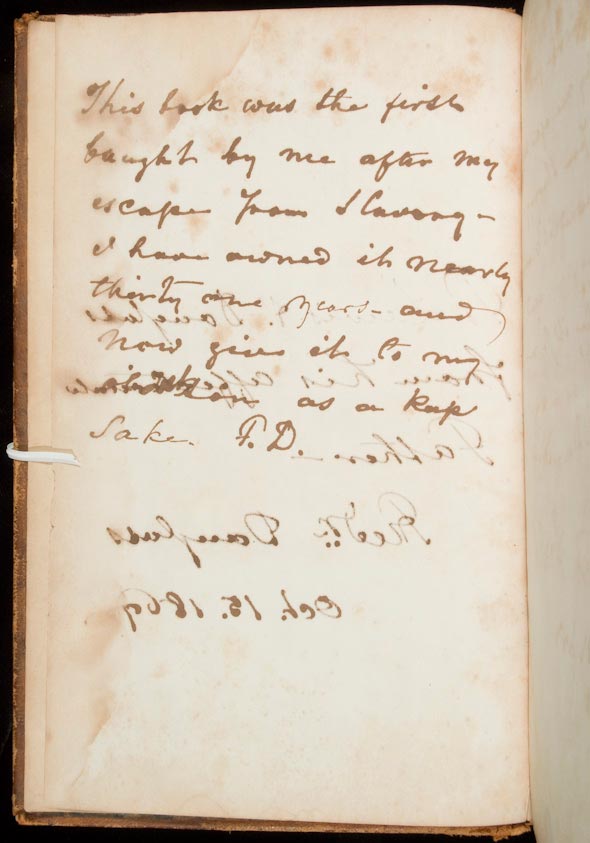 This book was the first
bought by me after my
escape from Slavery –
I have owned it nearly
thirty one years – and
Now give it to my
as a Kep
Sake. F.D.
Douglass
From his
Father.
Fredk. Douglass
Oct. 15. 1869